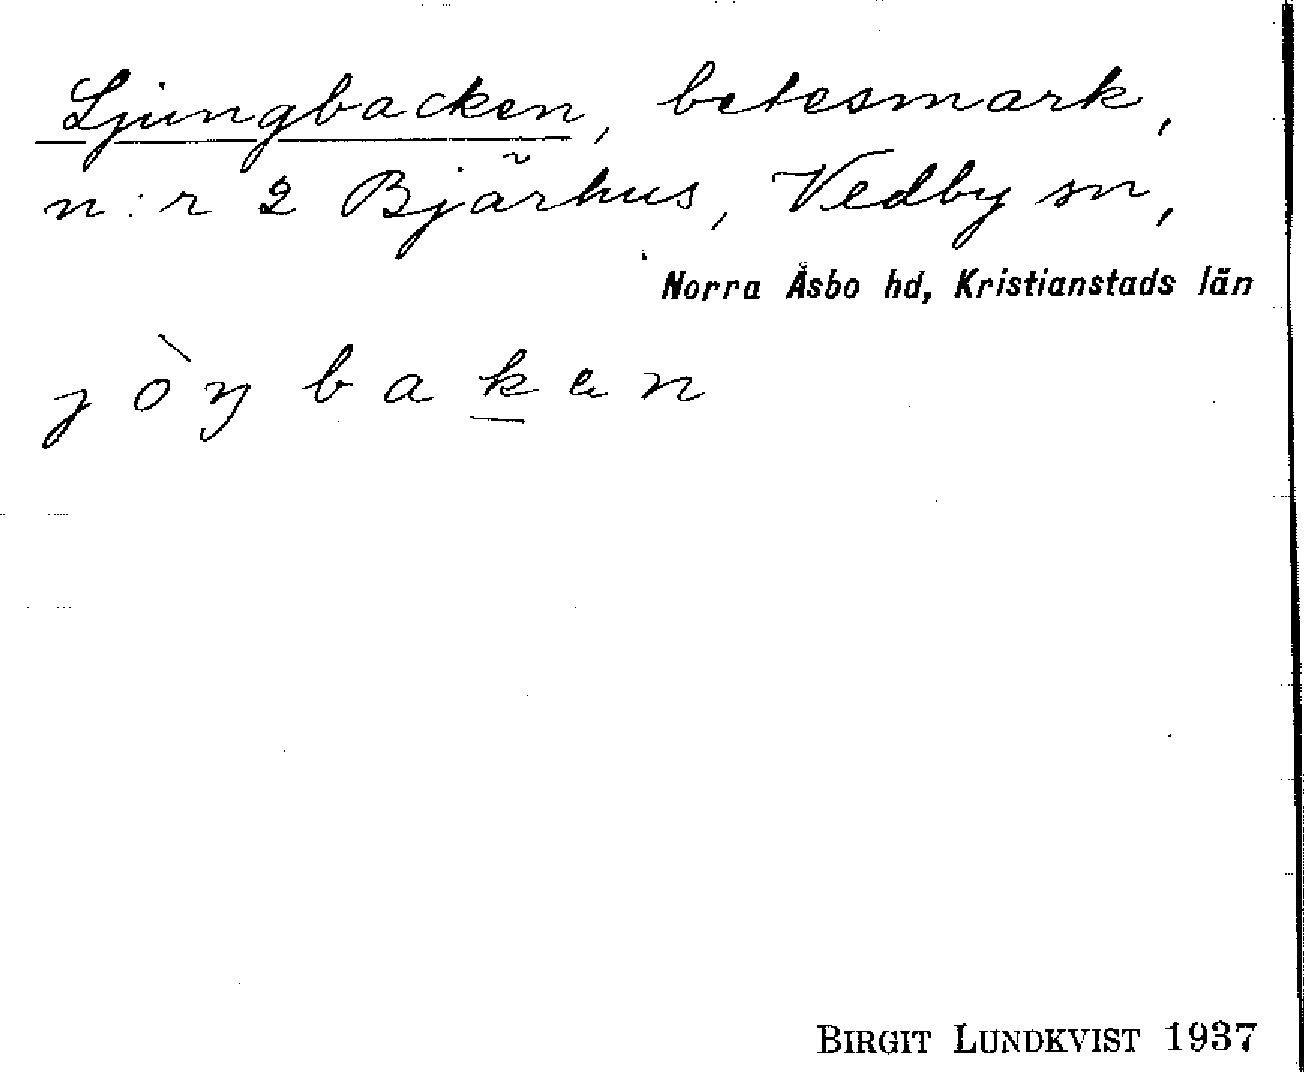 Ljungbacken, betesmark,
n:r 2 Bjärhus, Vedby sn,
Norra Åsbo hd, Kristianstads län
jòŋbakən
BIRGIT LUNDKVIST 1937